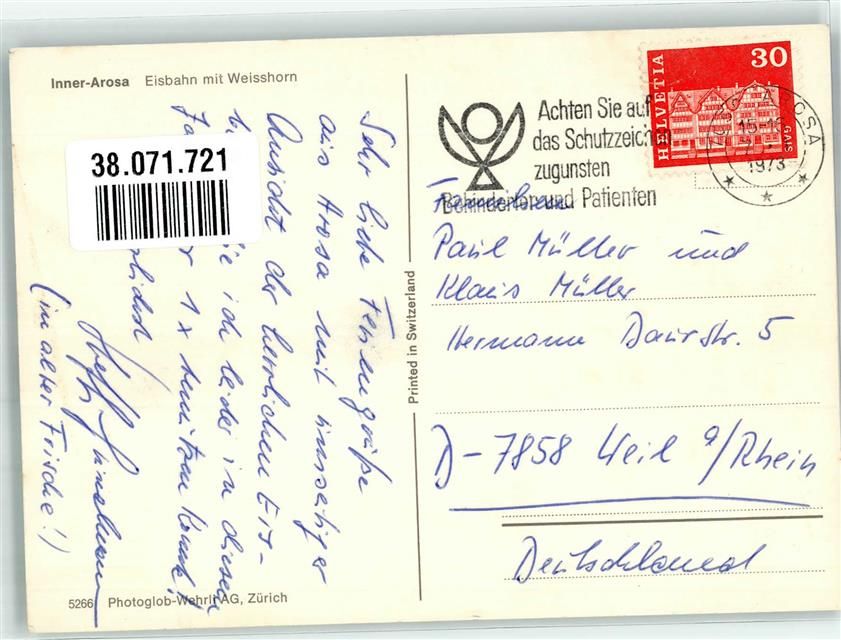 Inner-Arosa Eisbahn mit Weisshorn
38.071.721
Sehr liebe Feriengrüße
aus Arosa mit umseitiger
Ansicht der herrlichen Eis-
die ich leider in diesem
1x benützen konnte!
Herzlichst
(in alter Frische!)
5266 Photoglob-Wehrli AG, Zürich
Printed in Switzerland
Achten Sie auf
das Schutzzeichen
zugunsten
Behinderten und Patienten
HELVETIA
30
GAIS
AROSA
1973
Paul Müller und
Klaus Müller
Hermann Daurstr. 5
D-7858 Weil a/Rhein
Deutschland